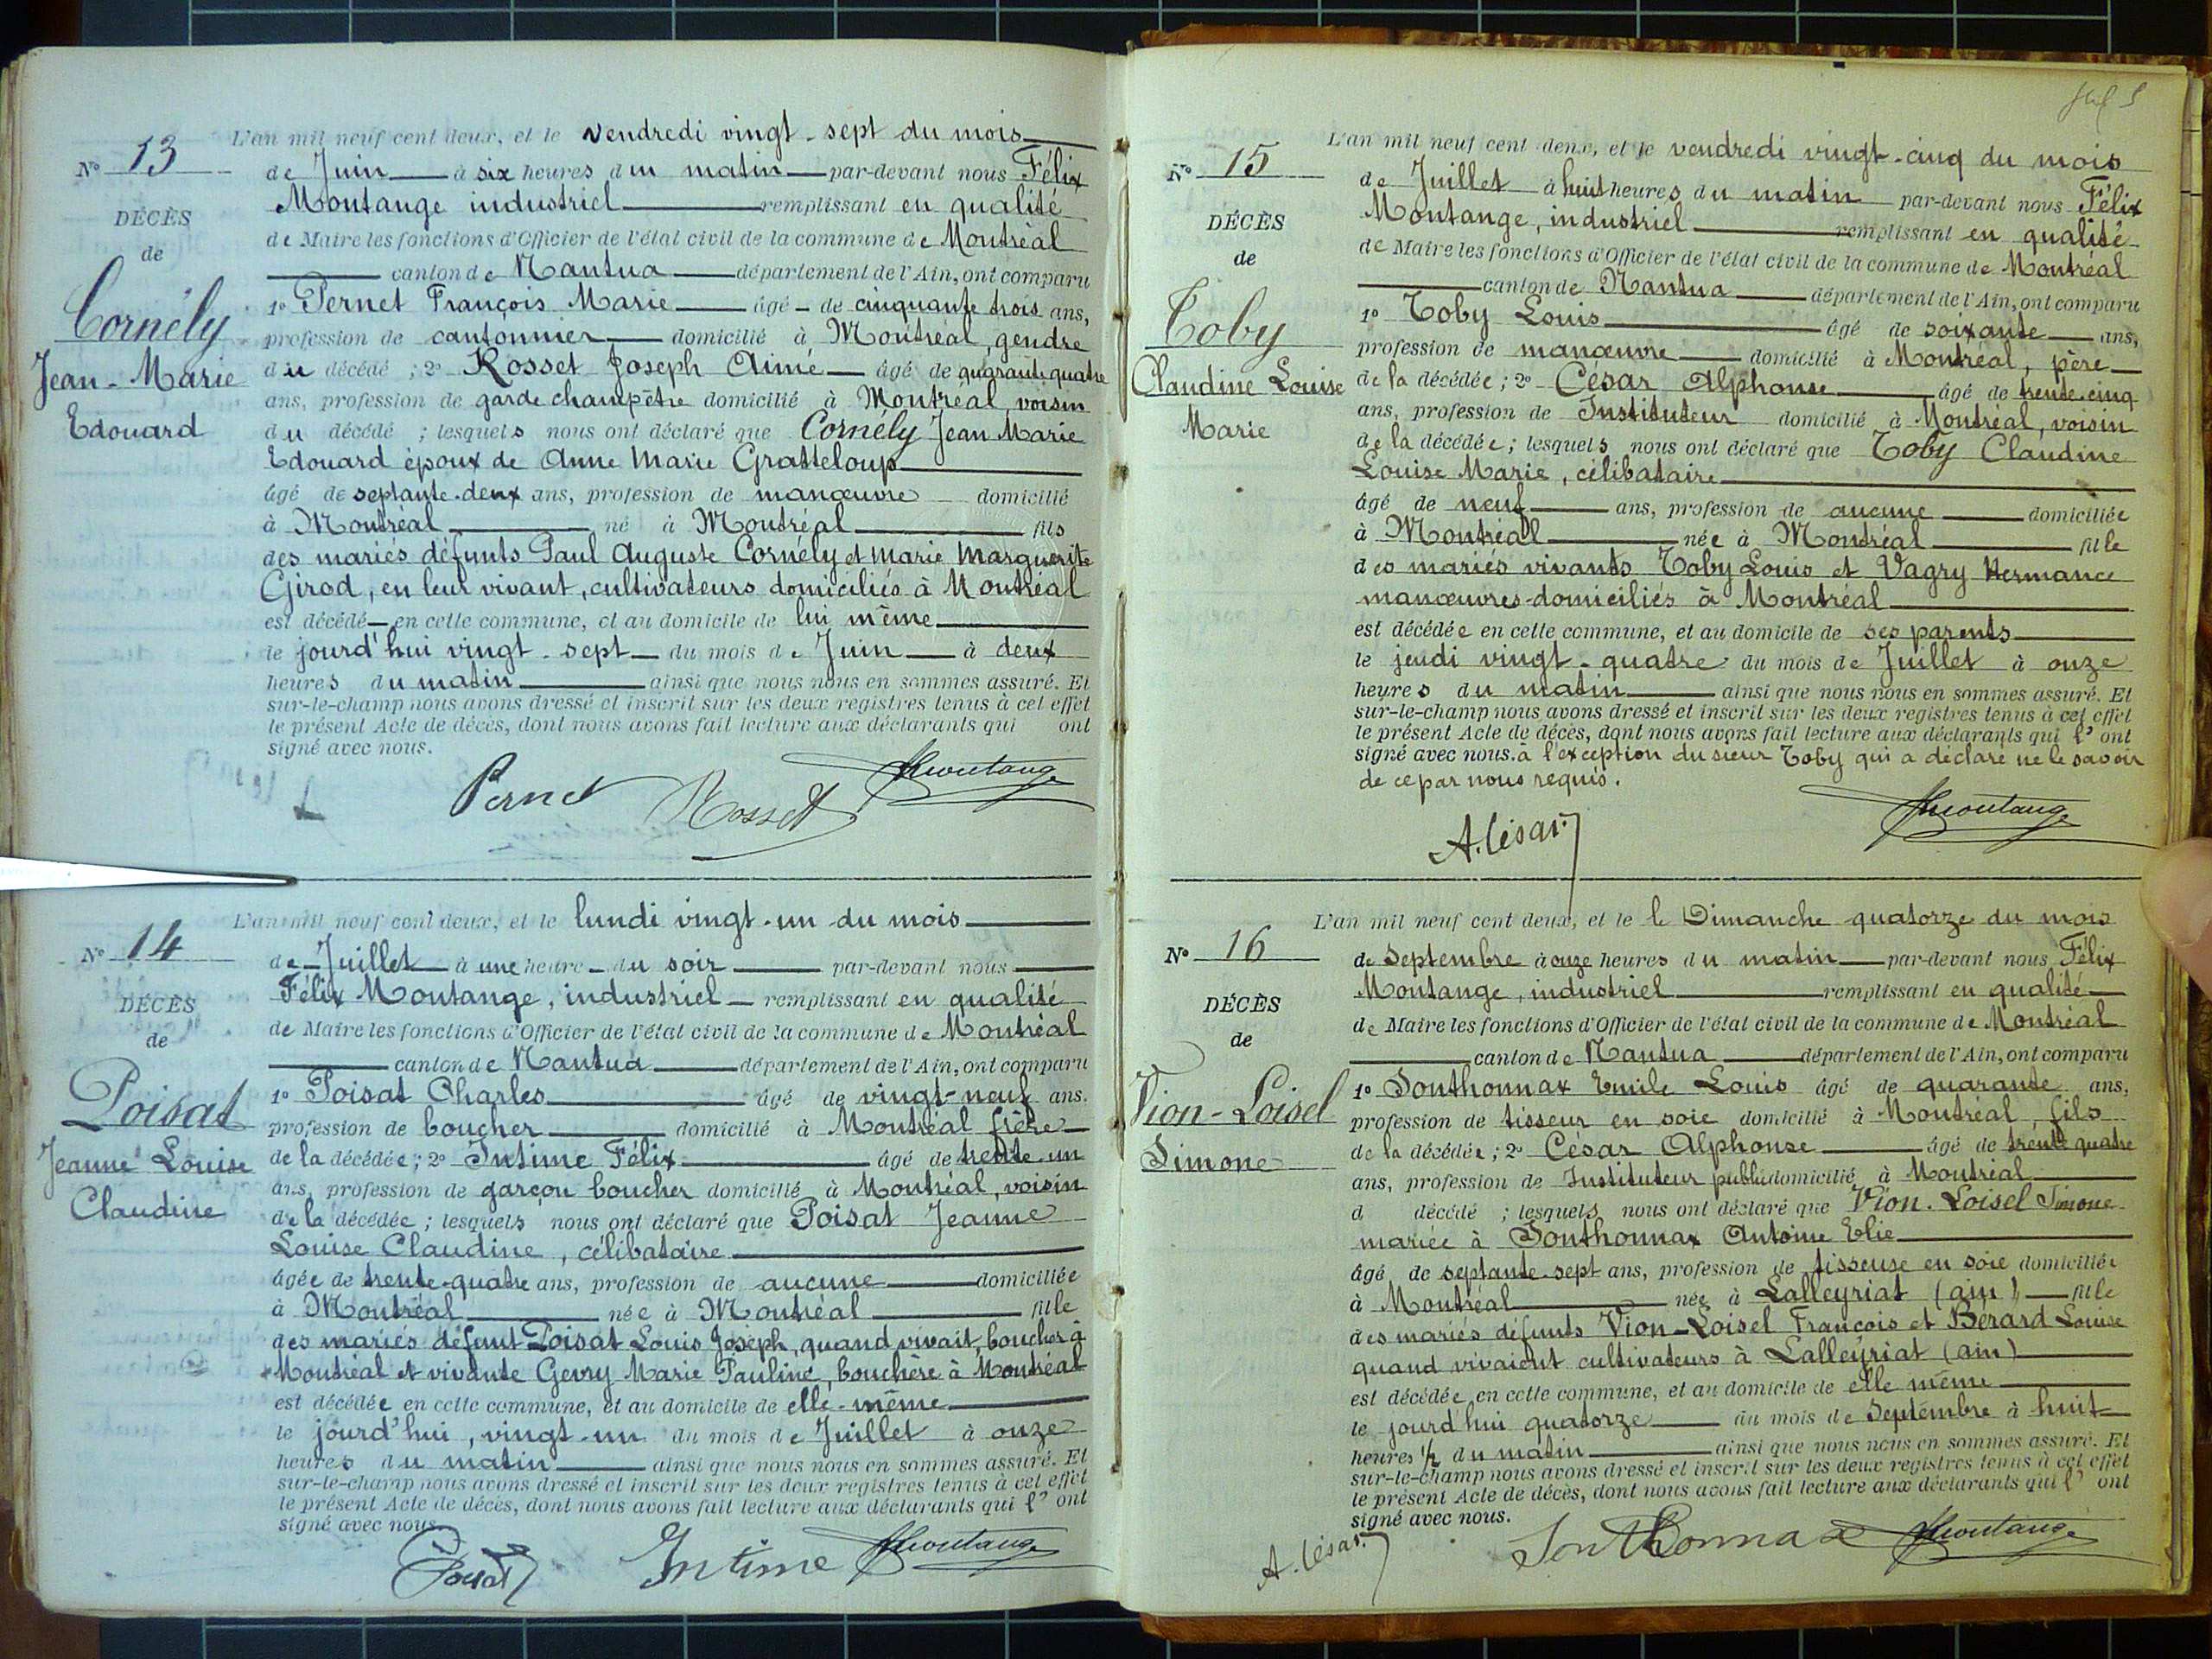 N° 13
DÉCÈS
de
Cornély
Jean-Marie
Edouard
L'an mil neuf cent deux, et le vendredi vingt-sept du mois
de Juin à six heures du matin par-devant nous Félix
Montange industriel remplissant en qualité
de Maire les fonctions d'Officier de l'état civil de la commune de Montréal
canton de Nantua département de l'Ain, ont comparu
1° Pernet François Marie âgé de cinquante trois ans,
profession de cantonnier domicilié à Montréal, gendre
du décédé ; 2° Rosset Joseph Aimé âgé de quarante quatre
ans, profession de garde champêtre domicilié à Montréal, voisin
du décédé ; lesquels nous ont déclaré que Cornély Jean Marie
Edouard époux de Anne Marie Gratteloup
âgé de septante-deux ans, profession de manœuvre domicilié
à Montréal né à Montréal fils
des mariés défunts Paul Auguste Cornély et Marie Marguerite
Girod, en leur vivant, cultivateurs domiciliés à Montréal
est décédé en cette commune, et au domicile de lui même
le jourd'hui vingt-sept du mois de Juin à deux
heures du matin ainsi que nous nous en sommes assuré. Et
sur-le-champ nous avons dressé et inscrit sur les deux registres tenus à cet effet
le présent Acte de décès, dont nous avons fait lecture aux déclarants qui ont
signé avec nous.
Pernet Rosset Montange
N° 14
DÉCÈS
de
Poisat
Jeanne Louise
Claudine
L'an mil neuf cent deux, et le lundi vingt-un du mois
de Juillet à une heure du soir par-devant nous
Félix Montange, industriel remplissant en qualité
de Maire les fonctions d'Officier de l'état civil de la commune de Montréal
canton de Nantua département de l'Ain, ont comparu
1° Poisat Charles âgé de vingt-neuf ans.
profession de boucher domicilié à Montréal frère
de la décédée ; 2° Intime Félix âgé de trente-un
ans, profession de garçon boucher domicilié à Montréal, voisin
de la décédée ; lesquels nous ont déclaré que Poisat Jeanne
Louise Claudine, célibataire
âgée de trente-quatre ans, profession de aucune domiciliée
à Montréal née à Montréal fille
des mariés défunt Poisat Louis Joseph, quand vivait, boucher à
Montréal et vivante Gevry Marie Pauline, bouchère à Montréal
est décédée en cette commune, et au domicile de elle-même
le jourd'hui, vingt-un du mois de Juillet à onze
heures du matin ainsi que nous nous en sommes assuré. Et
sur-le-champ nous avons dressé et inscrit sur les deux registres tenus à cet effet
le présent Acte de décès, dont nous avons fait lecture aux déclarants qui l'ont
signé avec nous.
Poisat Intime Montange
N° 15
DÉCÈS
de
Toby
Claudine Louise
Marie
L'an mil neuf cent deux, et le vendredi vingt-cinq du mois
de Juillet à huit heures du matin par-devant nous Félix
Montange, industriel remplissant en qualité
de Maire les fonctions d'Officier de l'état civil de la commune de Montréal
canton de Nantua département de l'Ain, ont comparu
1° Toby Louis âgé de soixante ans,
profession de manœuvre domicilié à Montréal, père
de la décédée ; 2° César Alphonse âgé de trente-cinq
ans, profession de Instituteur domicilié à Montréal, voisin
de la décédée ; lesquels nous ont déclaré que Toby Claudine
Louise Marie, célibataire
âgé de neuf ans, profession de aucune domiciliée
à Montréal née à Montréal fille
des mariés vivants Toby Louis et Vagry Hermance
manœuvres domiciliés à Montréal
est décédée en cette commune, et au domicile de ses parents
le jeudi vingt-quatre du mois de Juillet à onze
heures du matin ainsi que nous nous en sommes assuré. Et
sur-le-champ nous avons dressé et inscrit sur les deux registres tenus à cet effet
le présent Acte de décès, dont nous avons fait lecture aux déclarants qui l'ont
signé avec nous. à l'exception du sieur Toby qui a déclaré ne le savoir
de ce par nous requis.
A. César Montange
N° 16
DÉCÈS
de
Vion-Loisel
Simone
L'an mil neuf cent deux, et le le Dimanche quatorze du mois
de Septembre à onze heures du matin par-devant nous Félix
Montange, industriel remplissant en qualité
de Maire les fonctions d'Officier de l'état civil de la commune de Montréal
canton de Nantua département de l'Ain, ont comparu
1° Sonthonnax Emile Louis âgé de quarante ans,
profession de tisseur en soie domicilié à Montréal, fils
de la décédée ; 2° César Alphonse âgé de trente quatre
ans, profession de Instituteur public domicilié à Montréal
d décédé ; lesquels nous ont déclaré que Vion-Loisel Simone
mariée à Sonthonnax Antoine Elie
âgé de septante-sept ans, profession de tisseuse en soie domiciliée
à Montréal née à Lalleyriat (ain) fille
des mariés défunts Vion-Loisel François et Bérard Louise
quand vivaient cultivateurs à Lalleyriat (ain)
est décédée en cette commune, et au domicile de elle même
le jourd'hui quatorze du mois de Septembre à huit
heures ½ du matin ainsi que nous nous en sommes assuré. Et
sur-le-champ nous avons dressé et inscrit sur les deux registres tenus à cet effet
le présent Acte de décès, dont nous avons fait lecture aux déclarants qui l'ont
signé avec nous.
A. César Sonthonnax Montange